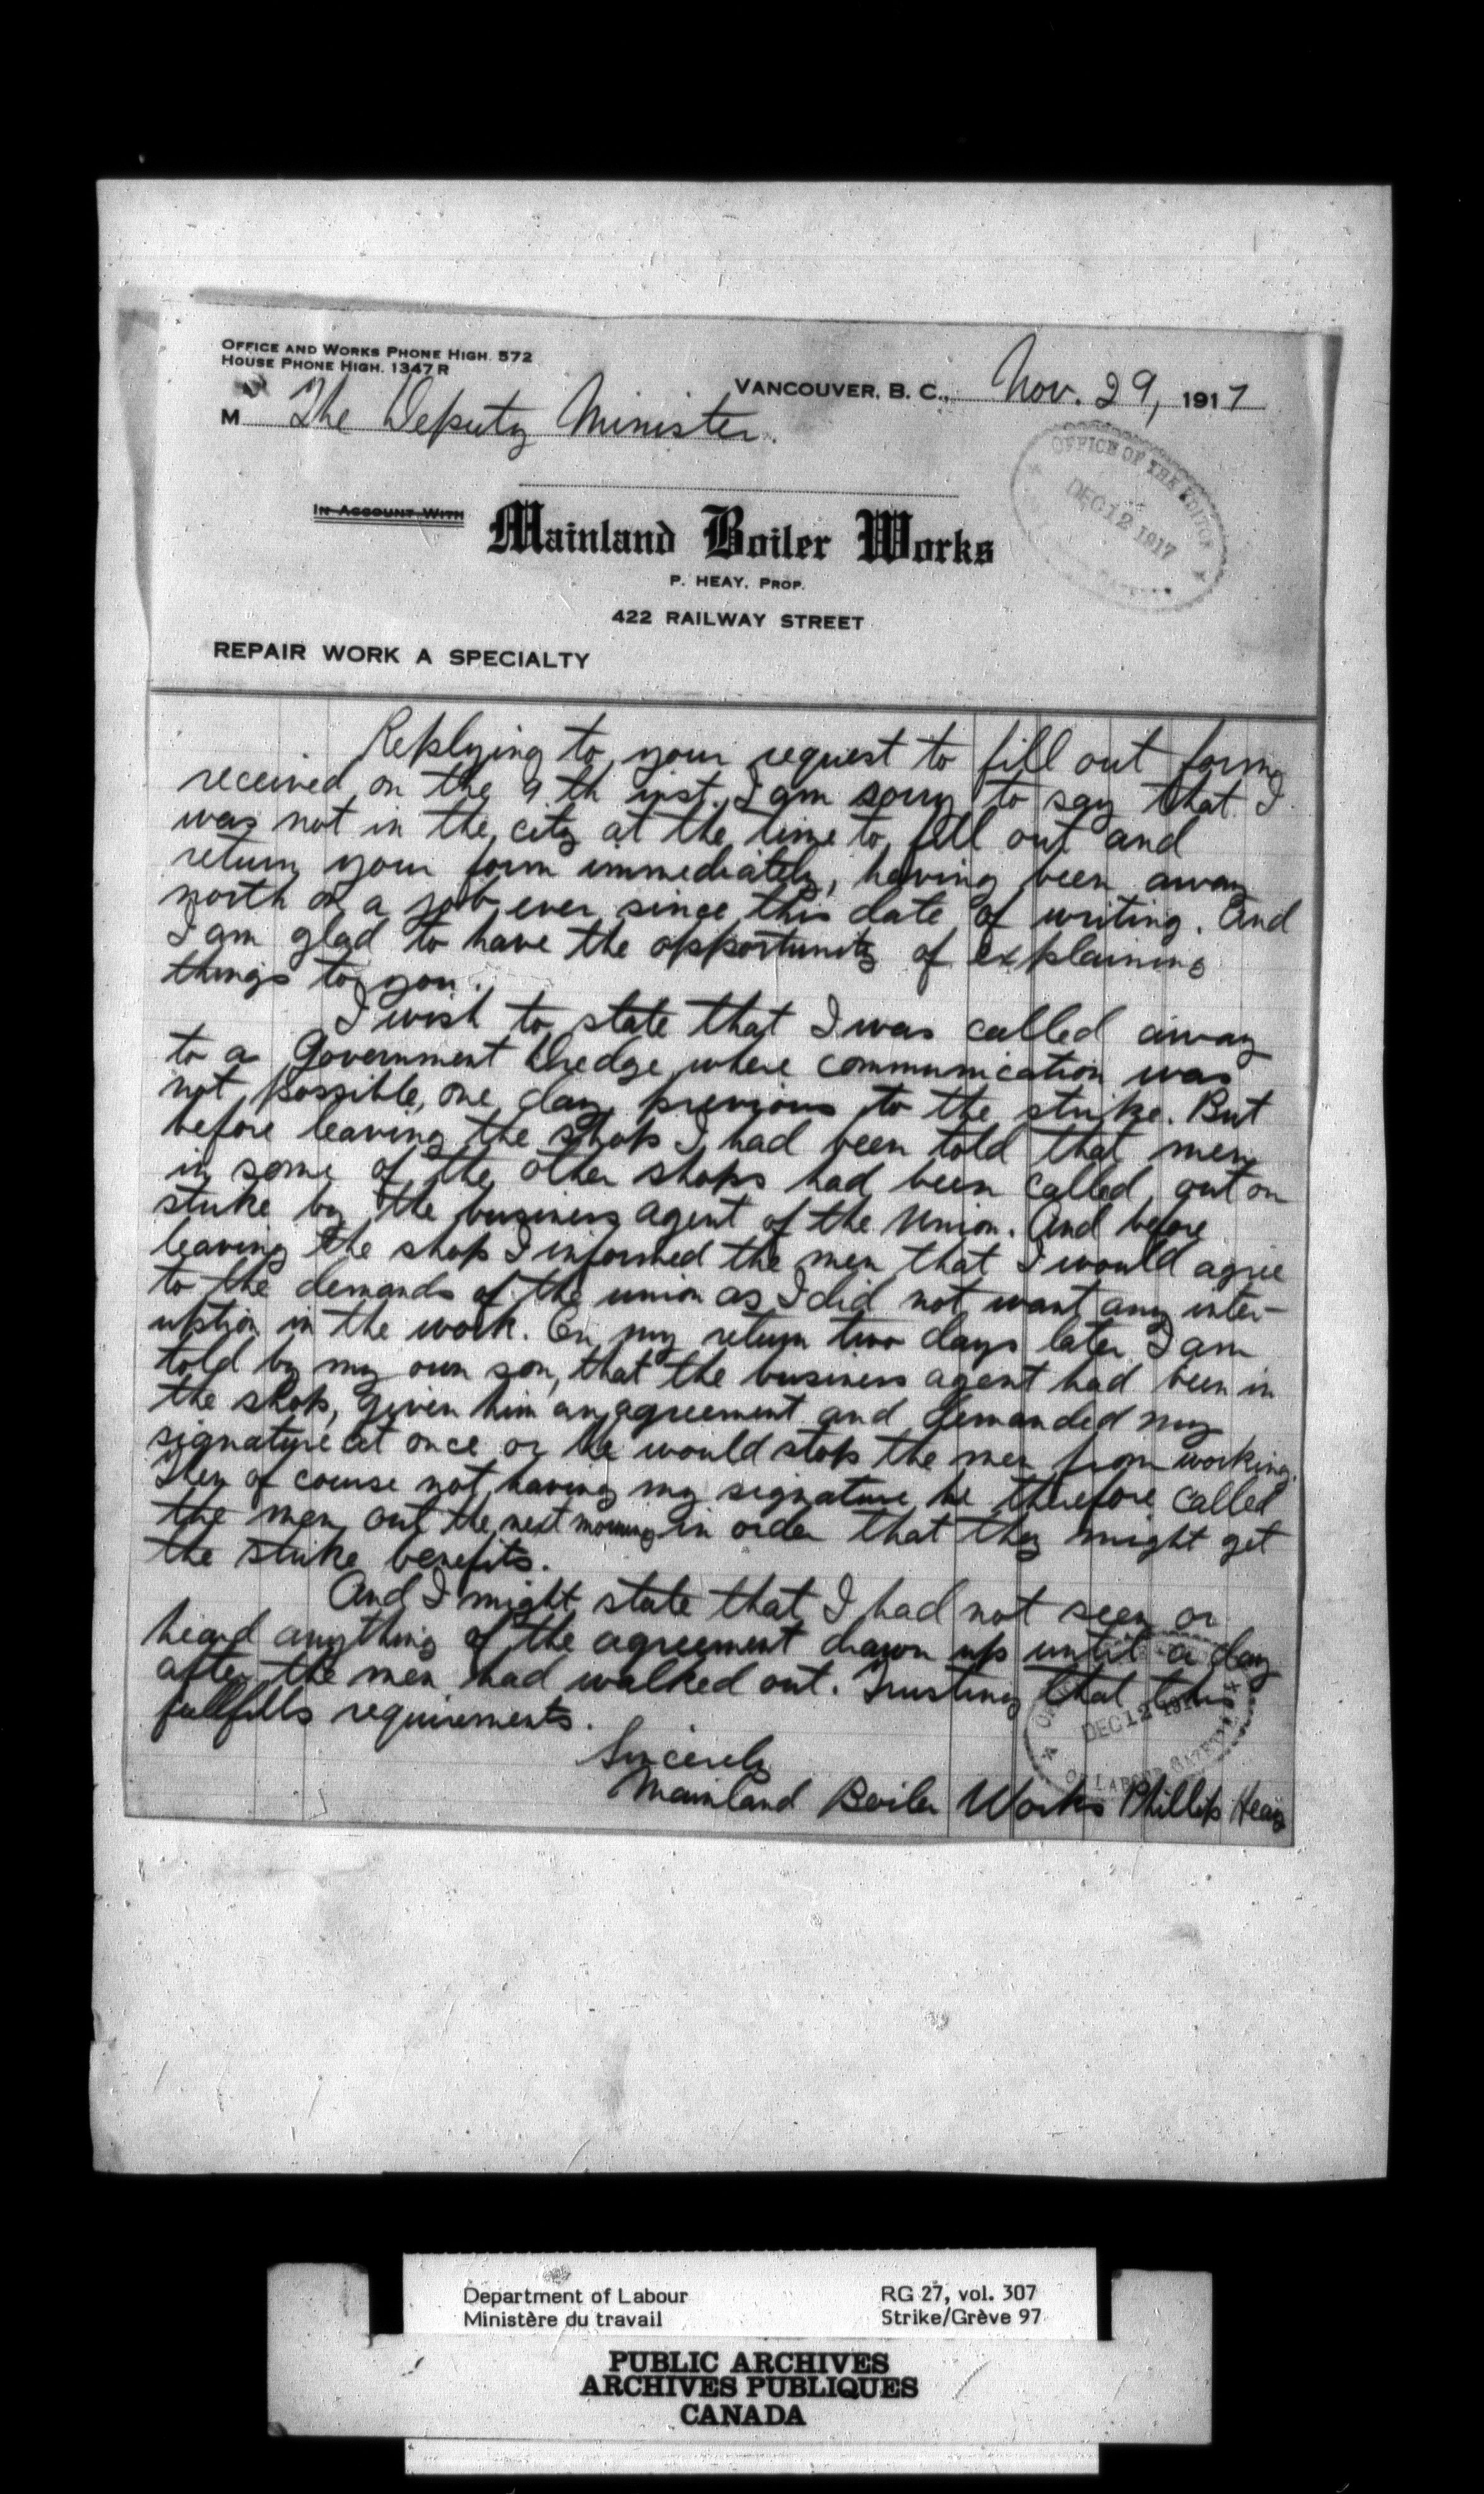 OFFICE AND WORKS PHONE HIGH. 572
HOUSE PHONE HIGH. 1347 R
VANCOUVER, B. C., Nov. 29, 1917
M The Deputy Minister.
OFFICE OF THE EDITOR
DEC 12 1917
IN ACCOUNT WITH
Mainland Boiler Works
P. HEAY, PROP.
422 RAILWAY STREET
REPAIR WORK A SPECIALTY
Replying to your request to fill out form
received on the 9th inst. I am sorry to say that I
was not in the city at the time to fill out and
return your form immediately, having been away
north on a job ever since this date of writing. And
I am glad to have the opportunity of explaining
things to you.
I wish to state that I was called away
to a Government Dredge where communication was
not possible, one day previous to the strike. But
before leaving the shop I had been told that men
in some of the other shops had been called out on
strike by the business agent of the Union. And before
leaving the shop I informed the men that I would agree
to the demands of the union as I did not want any inter-
uption in the work. On my return two days later I am
told by my own son, that the business agent had been in
the shop, given him an agreement and demanded my
signature at once or he would stop the men from working.
Then of course not having my signature he therefore called
the men out the next morning in order that they might get
the strike benefits.
And I might state that I had not seen or
heard anything of the agreement drawn up until a day
after the men had walked out. Trusting that this
fullfills requirements.
DEC 12 1917
OF LABOUR GAZETTE
Sincerely
Mainland Boiler Works Phillip Heay
Department of Labour
Ministère du travail
RG 27, vol. 307
Strike/Grève 97
PUBLIC ARCHIVES
ARCHIVES PUBLIQUES
CANADA